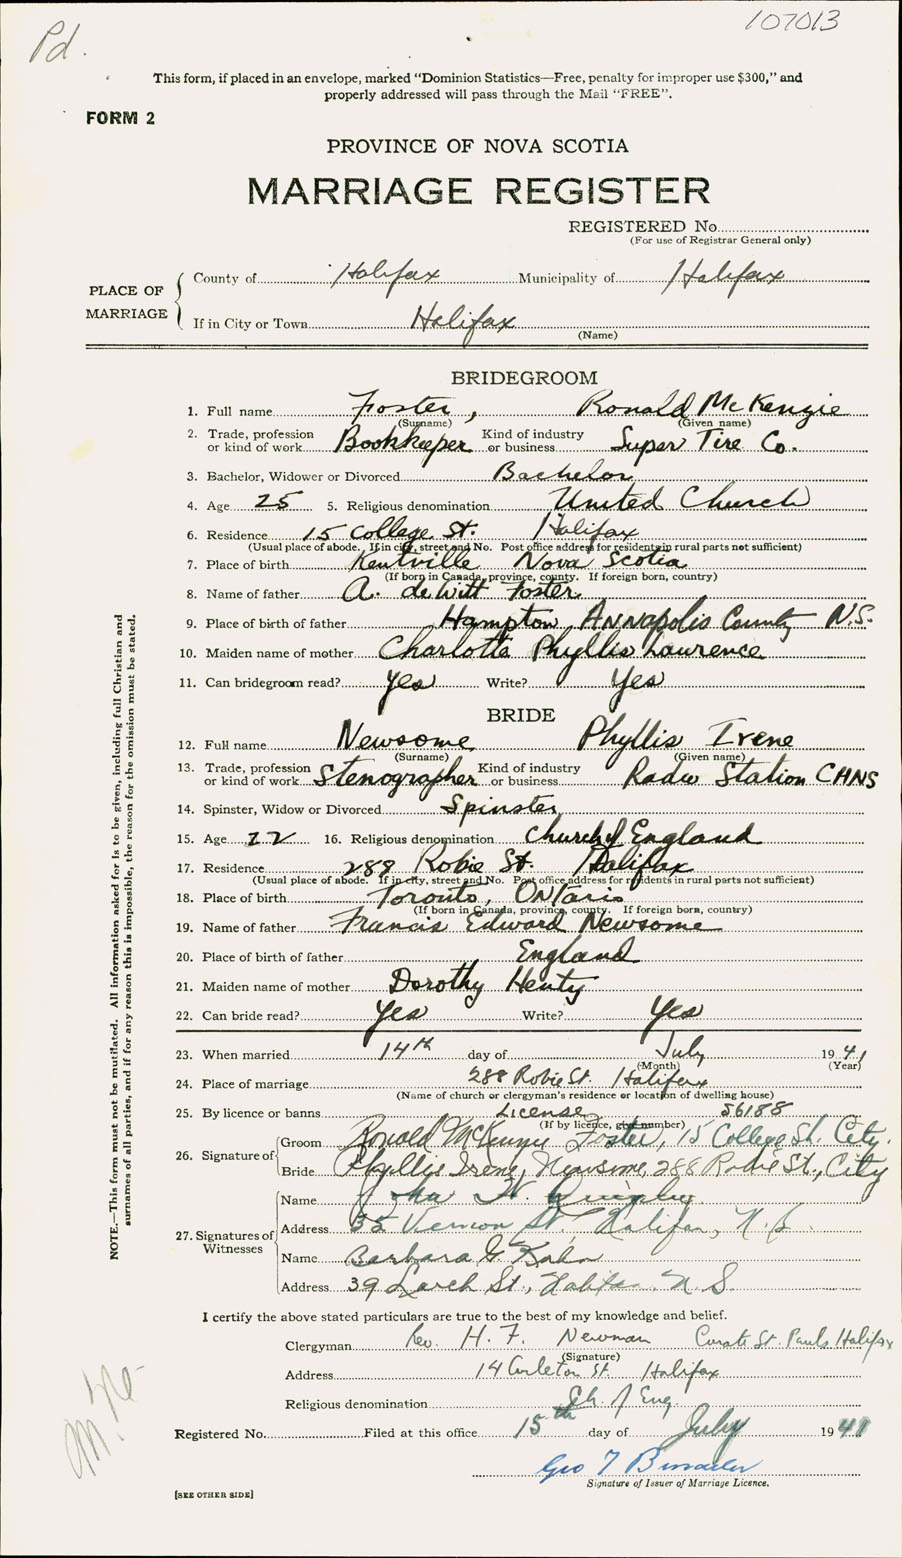 107013
Pd.
This form, if placed in an envelope, marked "Dominion Statistics—Free, penalty for improper use $300," and
properly addressed will pass through the Mail "FREE".
FORM 2
PROVINCE OF NOVA SCOTIA
MARRIAGE REGISTER
REGISTERED No.
(For use of Registrar General only)
PLACE OF MARRIAGE
County of Halifax Municipality of Halifax
If in City or Town Halifax
(Name)
BRIDEGROOM
1. Full name Foster, Ronald McKenzie
(Surname) (Given name)
2. Trade, profession or kind of work Bookkeeper Kind of industry or business Super Tire Co.
3. Bachelor, Widower or Divorced Bachelor
4. Age 25 5. Religious denomination United Church
6. Residence 15 College St. Halifax
(Usual place of abode. If in city, street and No. Post office address for residents in rural parts not sufficient)
7. Place of birth Kentville Nova Scotia
(If born in Canada, province, county. If foreign born, country)
8. Name of father A. deWitt Foster
9. Place of birth of father Hampton Annapolis County N.S.
10. Maiden name of mother Charlotta Phyllis Lawrence
11. Can bridegroom read? Yes Write? Yes
BRIDE
12. Full name Newsome Phyllis Irene
(Surname) (Given name)
13. Trade, profession or kind of work Stenographer Kind of industry or business Radio Station CHNS
14. Spinster, Widow or Divorced Spinster
15. Age 22 16. Religious denomination Church of England
17. Residence 288 Robie St. Halifax
(Usual place of abode. If in city, street and No. Post office address for residents in rural parts not sufficient)
18. Place of birth Toronto, Ontario
(If born in Canada, province, county. If foreign born, country)
19. Name of father Francis Edward Newsome
20. Place of birth of father England
21. Maiden name of mother Dorothy Henty
22. Can bride read? Yes Write? Yes
23. When married 14th day of July 1941
(Month) (Year)
24. Place of marriage 288 Robie St. Halifax
(Name of church or clergyman's residence or location of dwelling house)
25. By licence or banns License 56188
(If by licence, give number)
26. Signature of
Groom Ronald McKenzie Foster, 15 College St. City.
Bride Phyllis Irene Newsome, 288 Robie St., City
27. Signatures of Witnesses
Name
Address 35 Vernon St. Halifax, N.S.
Name Barbara G.
Address 39 Larch St., Halifax N.S.
I certify the above stated particulars are true to the best of my knowledge and belief.
Clergyman Rev. H. F. Newman Curate St. Pauls Halifax
(Signature)
Address 14 Carleton St. Halifax
Religious denomination Ch. of Eng.
Registered No. Filed at this office 15th day of July 1941
Geo
Signature of Issuer of Marriage Licence.
[SEE OTHER SIDE]
NOTE.—This form must not be mutilated. All information asked for is to be given, including full Christian and
surnames of all parties, and if for any reason this is impossible, the reason for the omission must be stated.